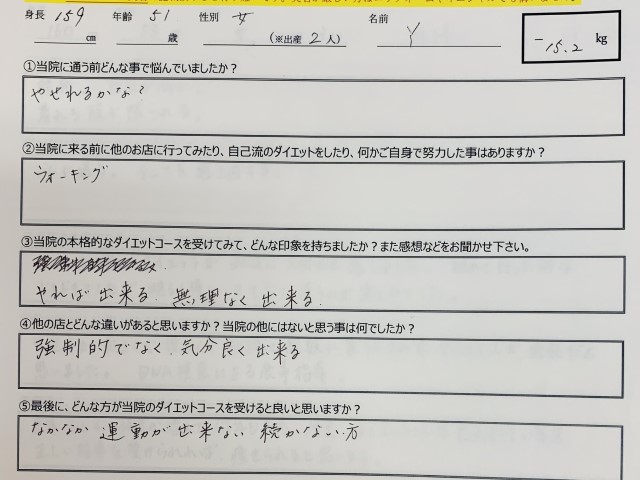 身長 159 cm 年齢 51 歳 性別 女 (※出産 2 人) 名前 Y
-15.2 kg
①当院に通う前どんな事で悩んでいましたか？
やせれるかな？
②当院に来る前に他のお店に行ってみたり、自己流のダイエットをしたり、何かご自身で努力した事はありますか？
ウォーキング
③当院の本格的なダイエットコースを受けてみて、どんな印象を持ちましたか？また感想などをお聞かせ下さい。
やれば出来る. 無理なく出来る.
④他の店とどんな違いがあると思いますか？当院の他にはないと思う事は何でしたか？
強制的でなく.気分良く出来る
⑤最後に、どんな方が当院のダイエットコースを受けると良いと思いますか？
なかなか運動が出来ない続かない方